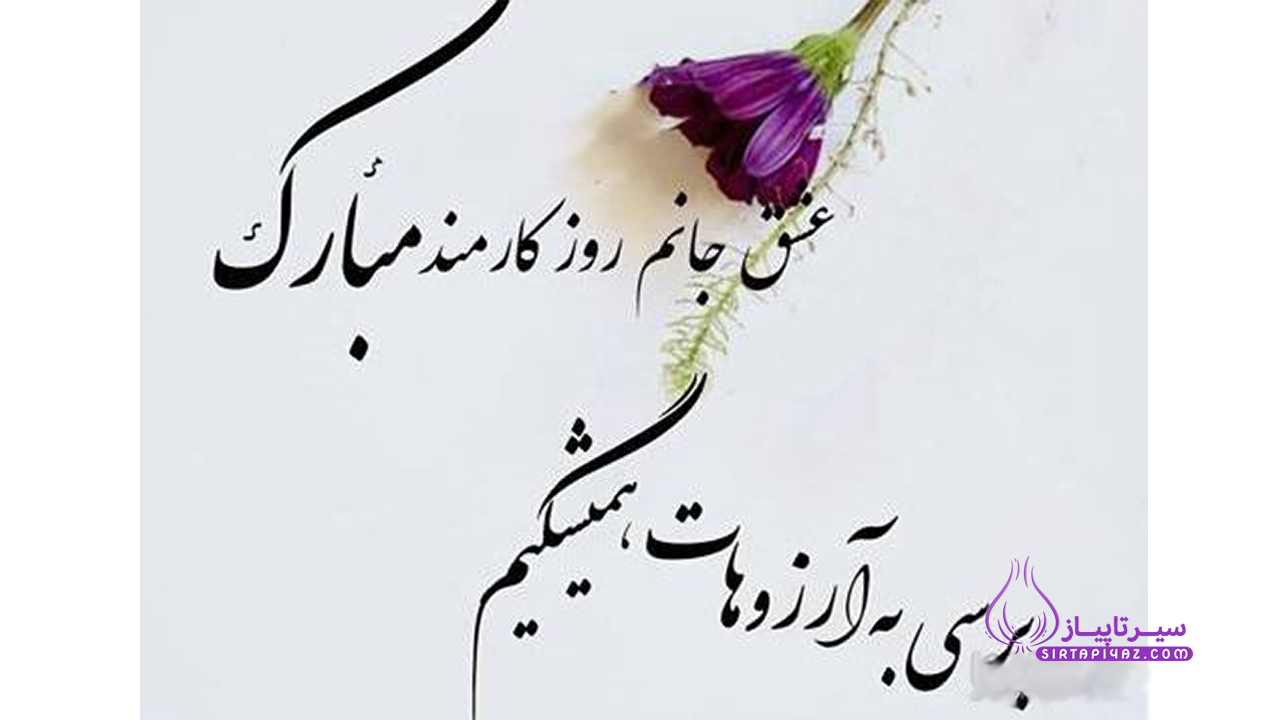 عشق جانم روز کارمند مبارک
برسی به آرزوهات، همیشگیم
سیرتاپیاز
SIRTAPIYAZ.COM